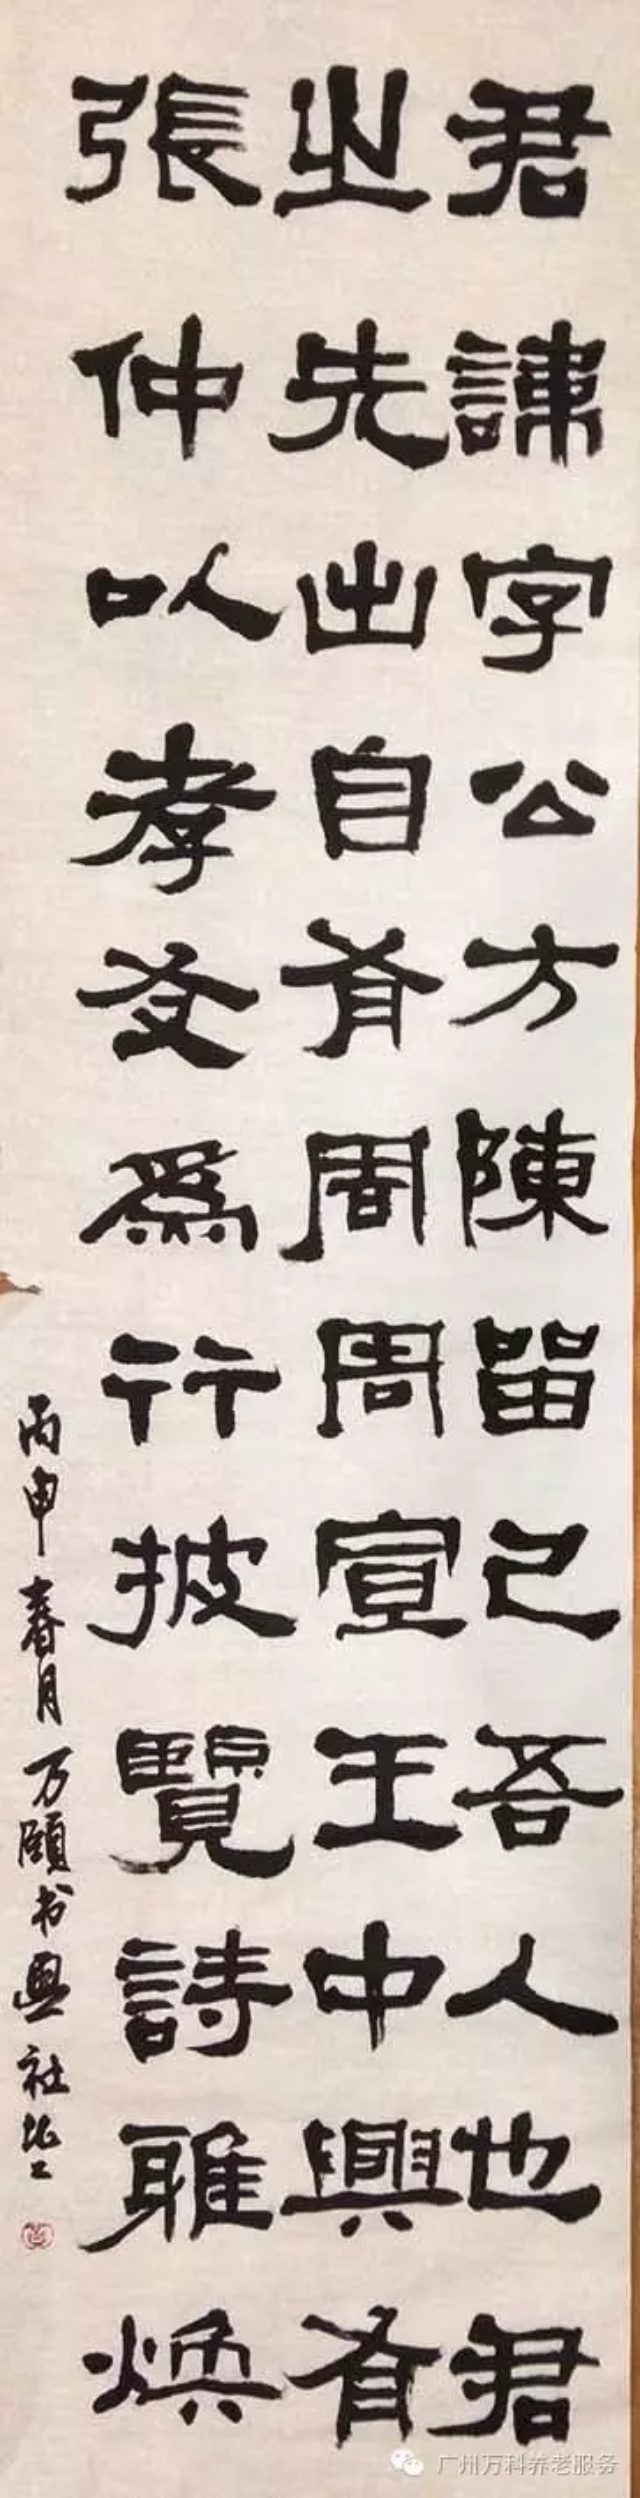 君諱字公方陳留己吾人也君
之先出自有周周宣王中興有
張仲以孝友爲行披覽詩雅煥
丙申春月万頤书画社
广州万科养老服务